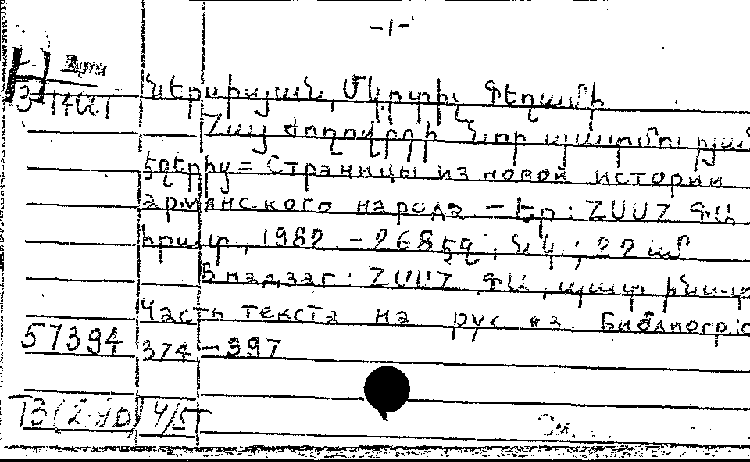 -1-
Ներսիսյան, Մկրտիչ Գեղամի
Հայ ժողովրդի նոր պատմության
էջերից = Страницы из новой истории
армянского народа - Եր: ՀՍՍՀ ԳԱ
հրատ, 1982 - 268 էջ; նկ; 22 սմ
В надзаг: ՀՍՍՀ ԳԱ, պատ ինստ
Часть текста на рус яз Библиогр: с
57394 374-397
Т3(2-Ар) 4/5